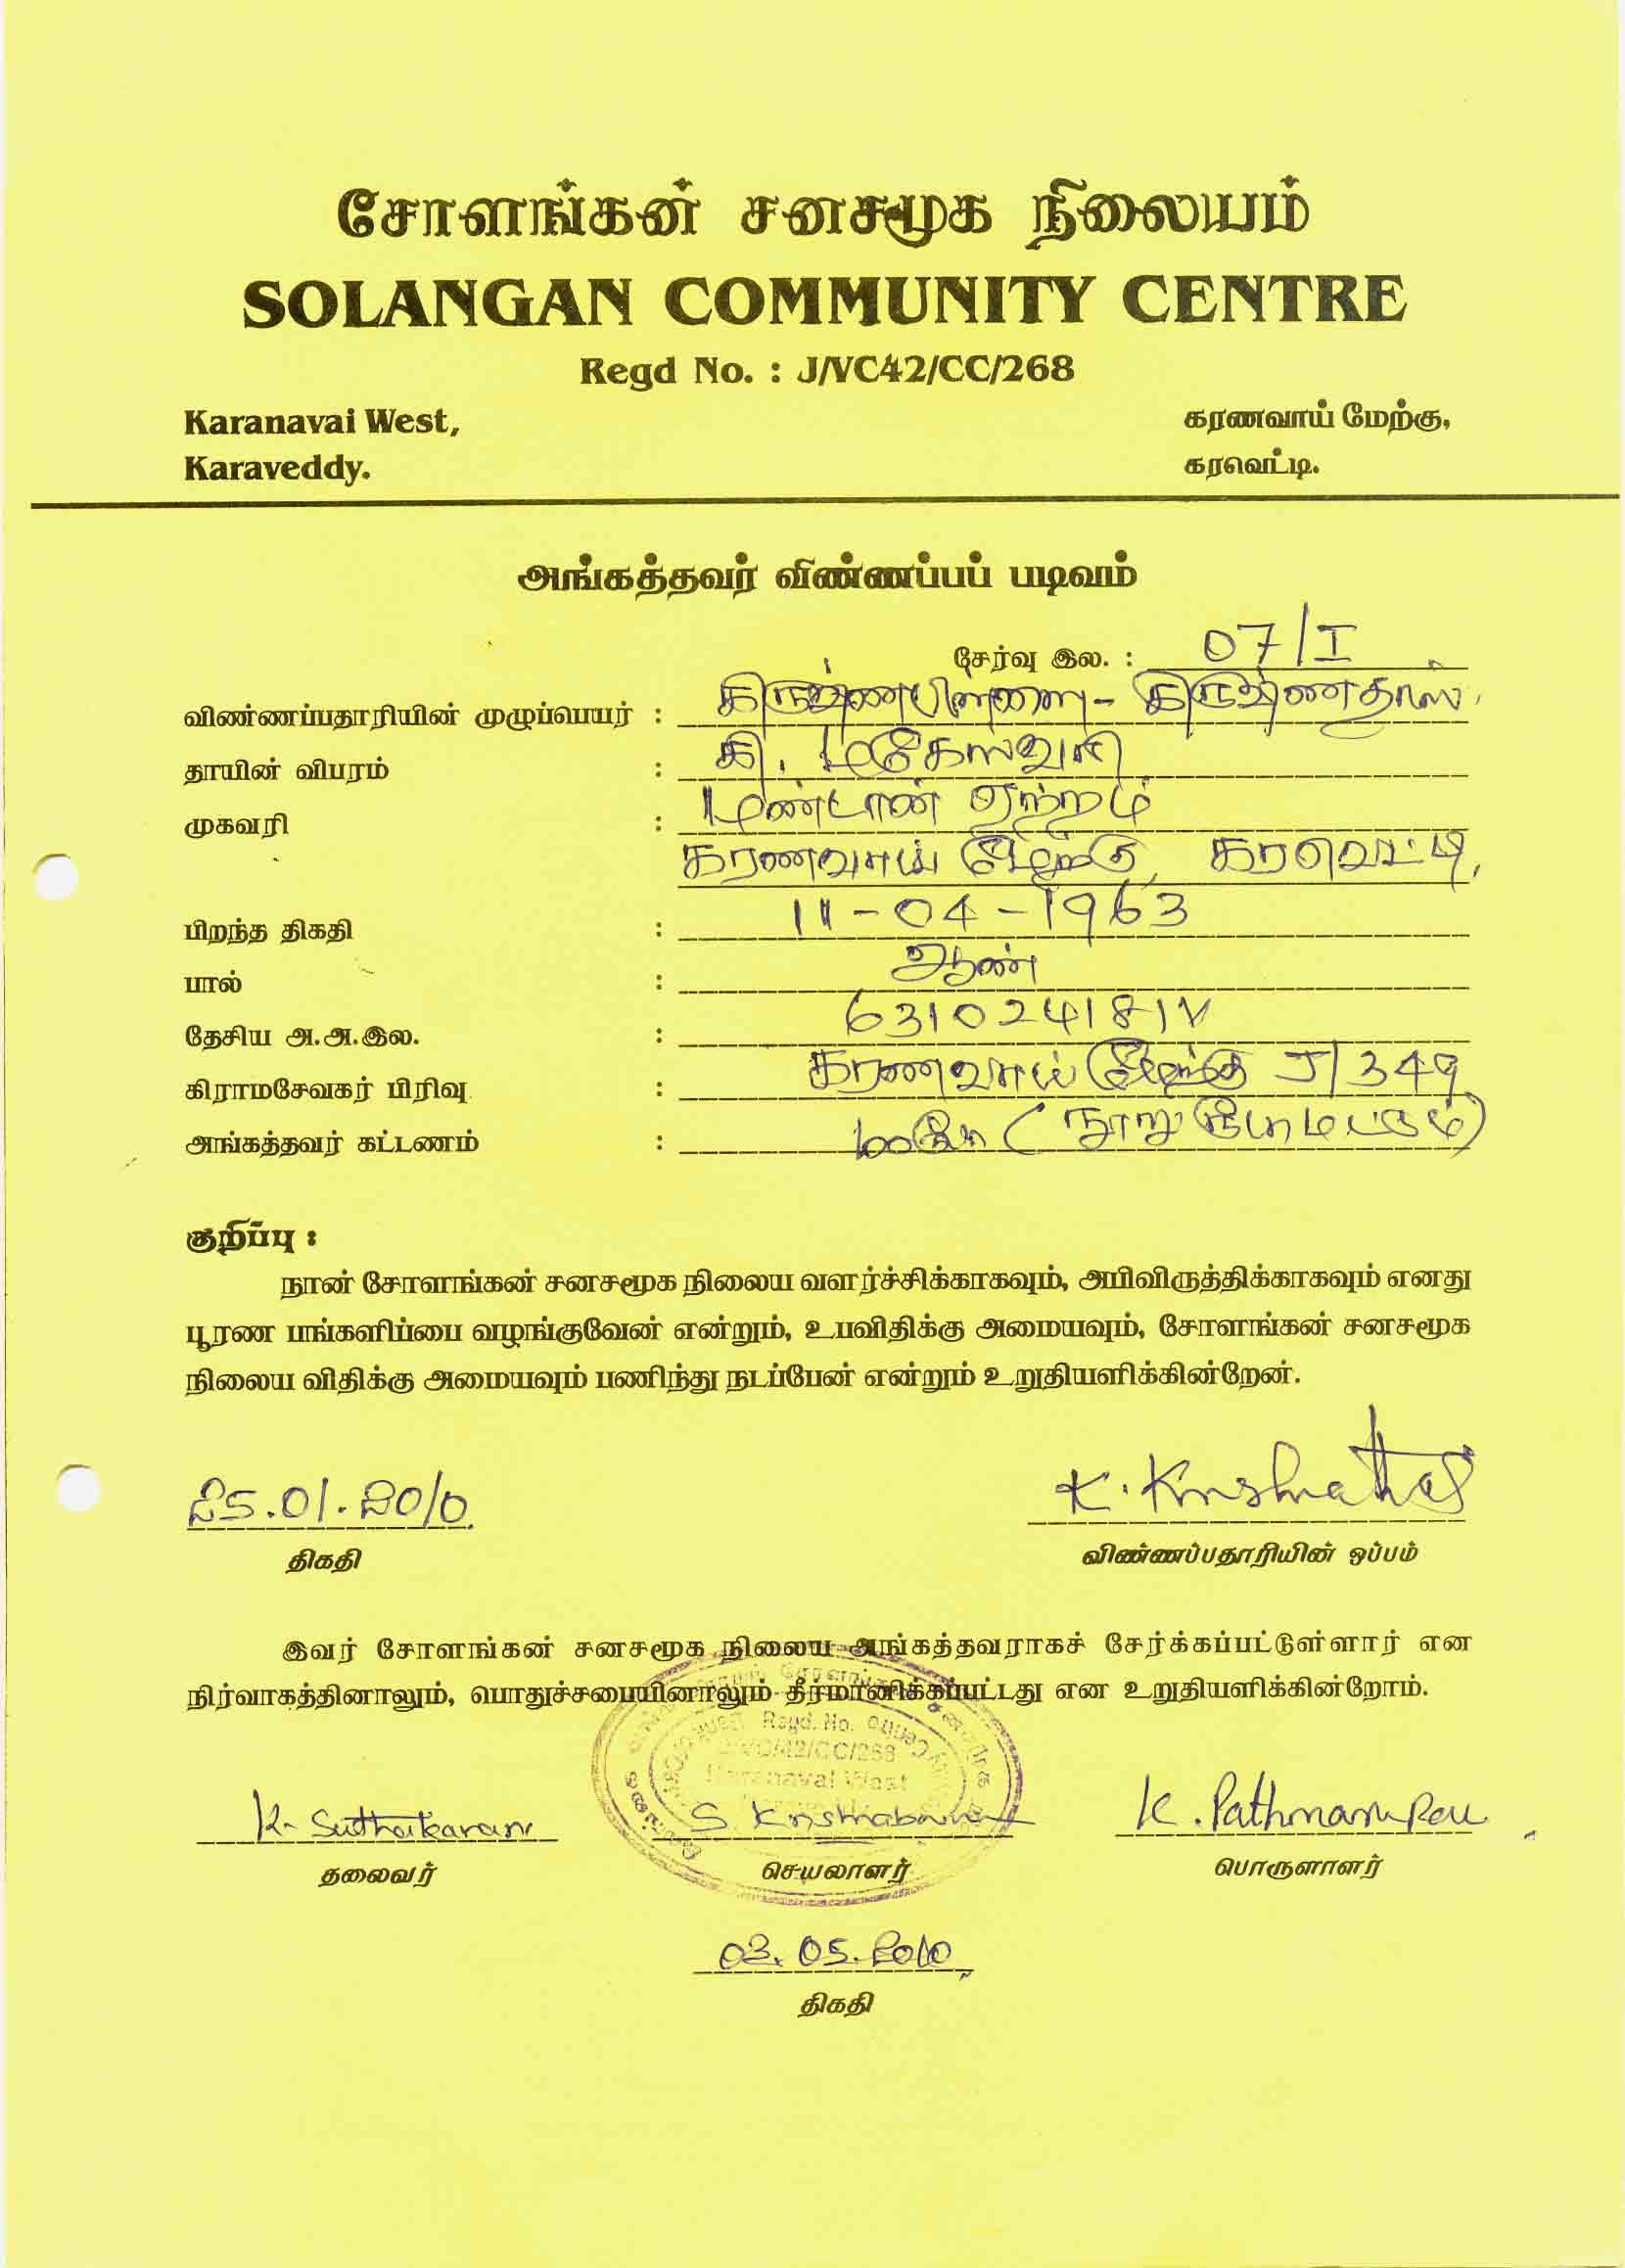 சோளங்கன் சனசமூக நிலையம்
SOLANGAN COMMUNITY CENTRE
Regd No. : J/VC42/CC/268
Karanavai West, கரணவாய் மேற்கு,
Karaveddy. கரவெட்டி.
அங்கத்தவர் விண்ணப்பப் படிவம்
சேர்வு இல. : 07/I
விண்ணப்பதாரியின் முழுப்பெயர் : கிருஷ்ணபிள்ளை - கிருஷ்ணதாஸ்
தாயின் விபரம் : கி. மகேஸ்வரி
முகவரி : மண்டான் ஏற்றம்
கரணவாய் மேற்கு, கரவெட்டி,
பிறந்த திகதி : 11-04-1963
பால் : ஆண்
தேசிய அ.அ.இல. : 631024181V
கிராமசேவகர் பிரிவு : கரணவாய் மேற்கு J/349
அங்கத்தவர் கட்டணம் : (நூறு ரூபா மட்டும்)
குறிப்பு :
நான் சோளங்கன் சனசமூக நிலைய வளர்ச்சிக்காகவும், அபிவிருத்திக்காகவும் எனது
பூரண பங்களிப்பை வழங்குவேன் என்றும், உபவிதிக்கு அமையவும், சோளங்கன் சனசமூக
நிலைய விதிக்கு அமையவும் பணிந்து நடப்பேன் என்றும் உறுதியளிக்கின்றேன்.
25.01.2010 K. Krishnathas
திகதி விண்ணப்பதாரியின் ஒப்பம்
இவர் சோளங்கன் சனசமூக நிலைய அங்கத்தவராகச் சேர்க்கப்பட்டுள்ளார் என
நிர்வாகத்தினாலும், பொதுச்சபையினாலும் தீர்மானிக்கப்பட்டது என உறுதியளிக்கின்றோம்.
Regd. No.
J/VC/42/CC/268
Karanavai West
K. Suthakaran S. K. Pathmarupan
தலைவர் செயலாளர் பொருளாளர்
02.05.2010
திகதி